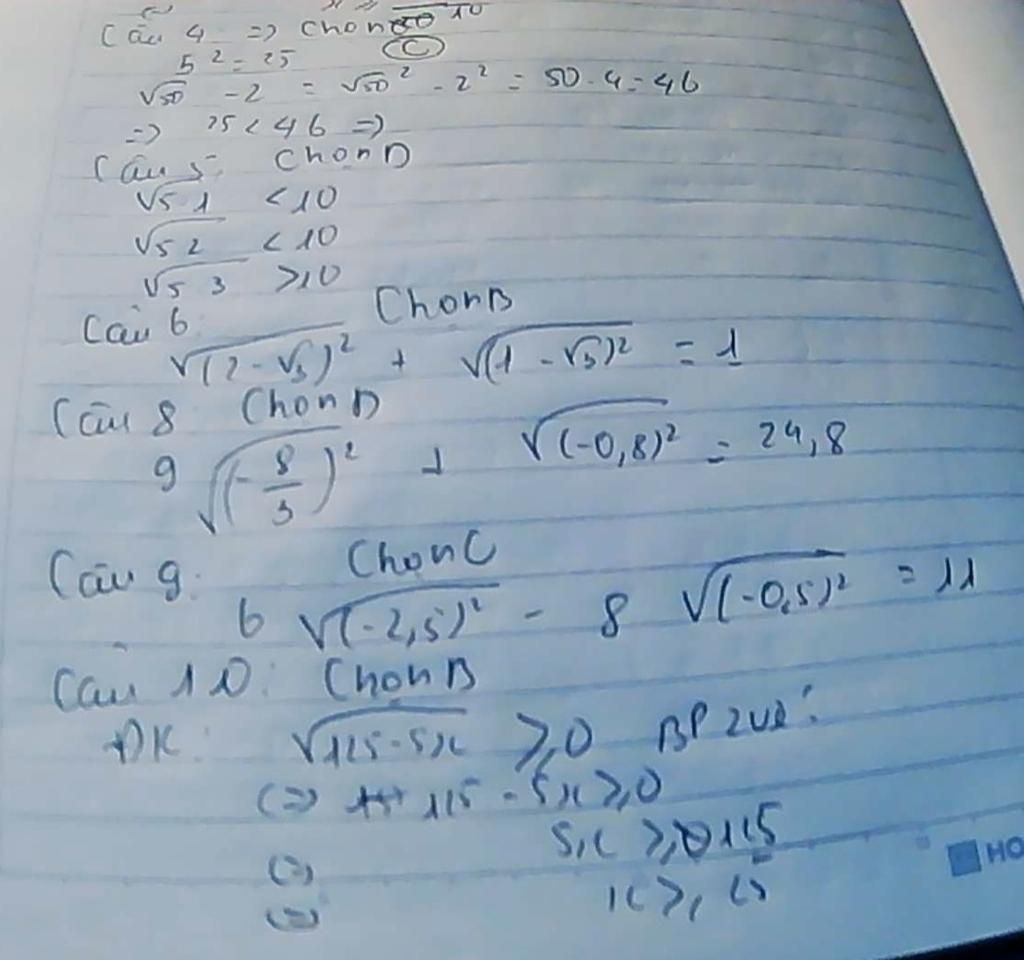 Câu 4 => Chọn 10
C
5² = 25
√50 - 2 = √50² - 2² = 50 - 4 = 46
=> 25 < 46 =>
Câu 5: Chọn D
√51 < 10
√52 < 10
√53 > 10
Câu 6: Chọn B
√(2-√3)² + √(1-√3)² = 1
Câu 8: Chọn D
9 √(-8/3)² + √(-0,8)² = 24,8
Câu 9: Chọn C
6 √(-2,5)² - 8 √(-0,5)² = 11
Câu 10: Chọn B
ĐK: √125-5x ≥ 0 BP 2 vế:
<=> 125 - 5x ≥ 0
<=> 5x ≥ 125
<=> x ≥ 25
HO